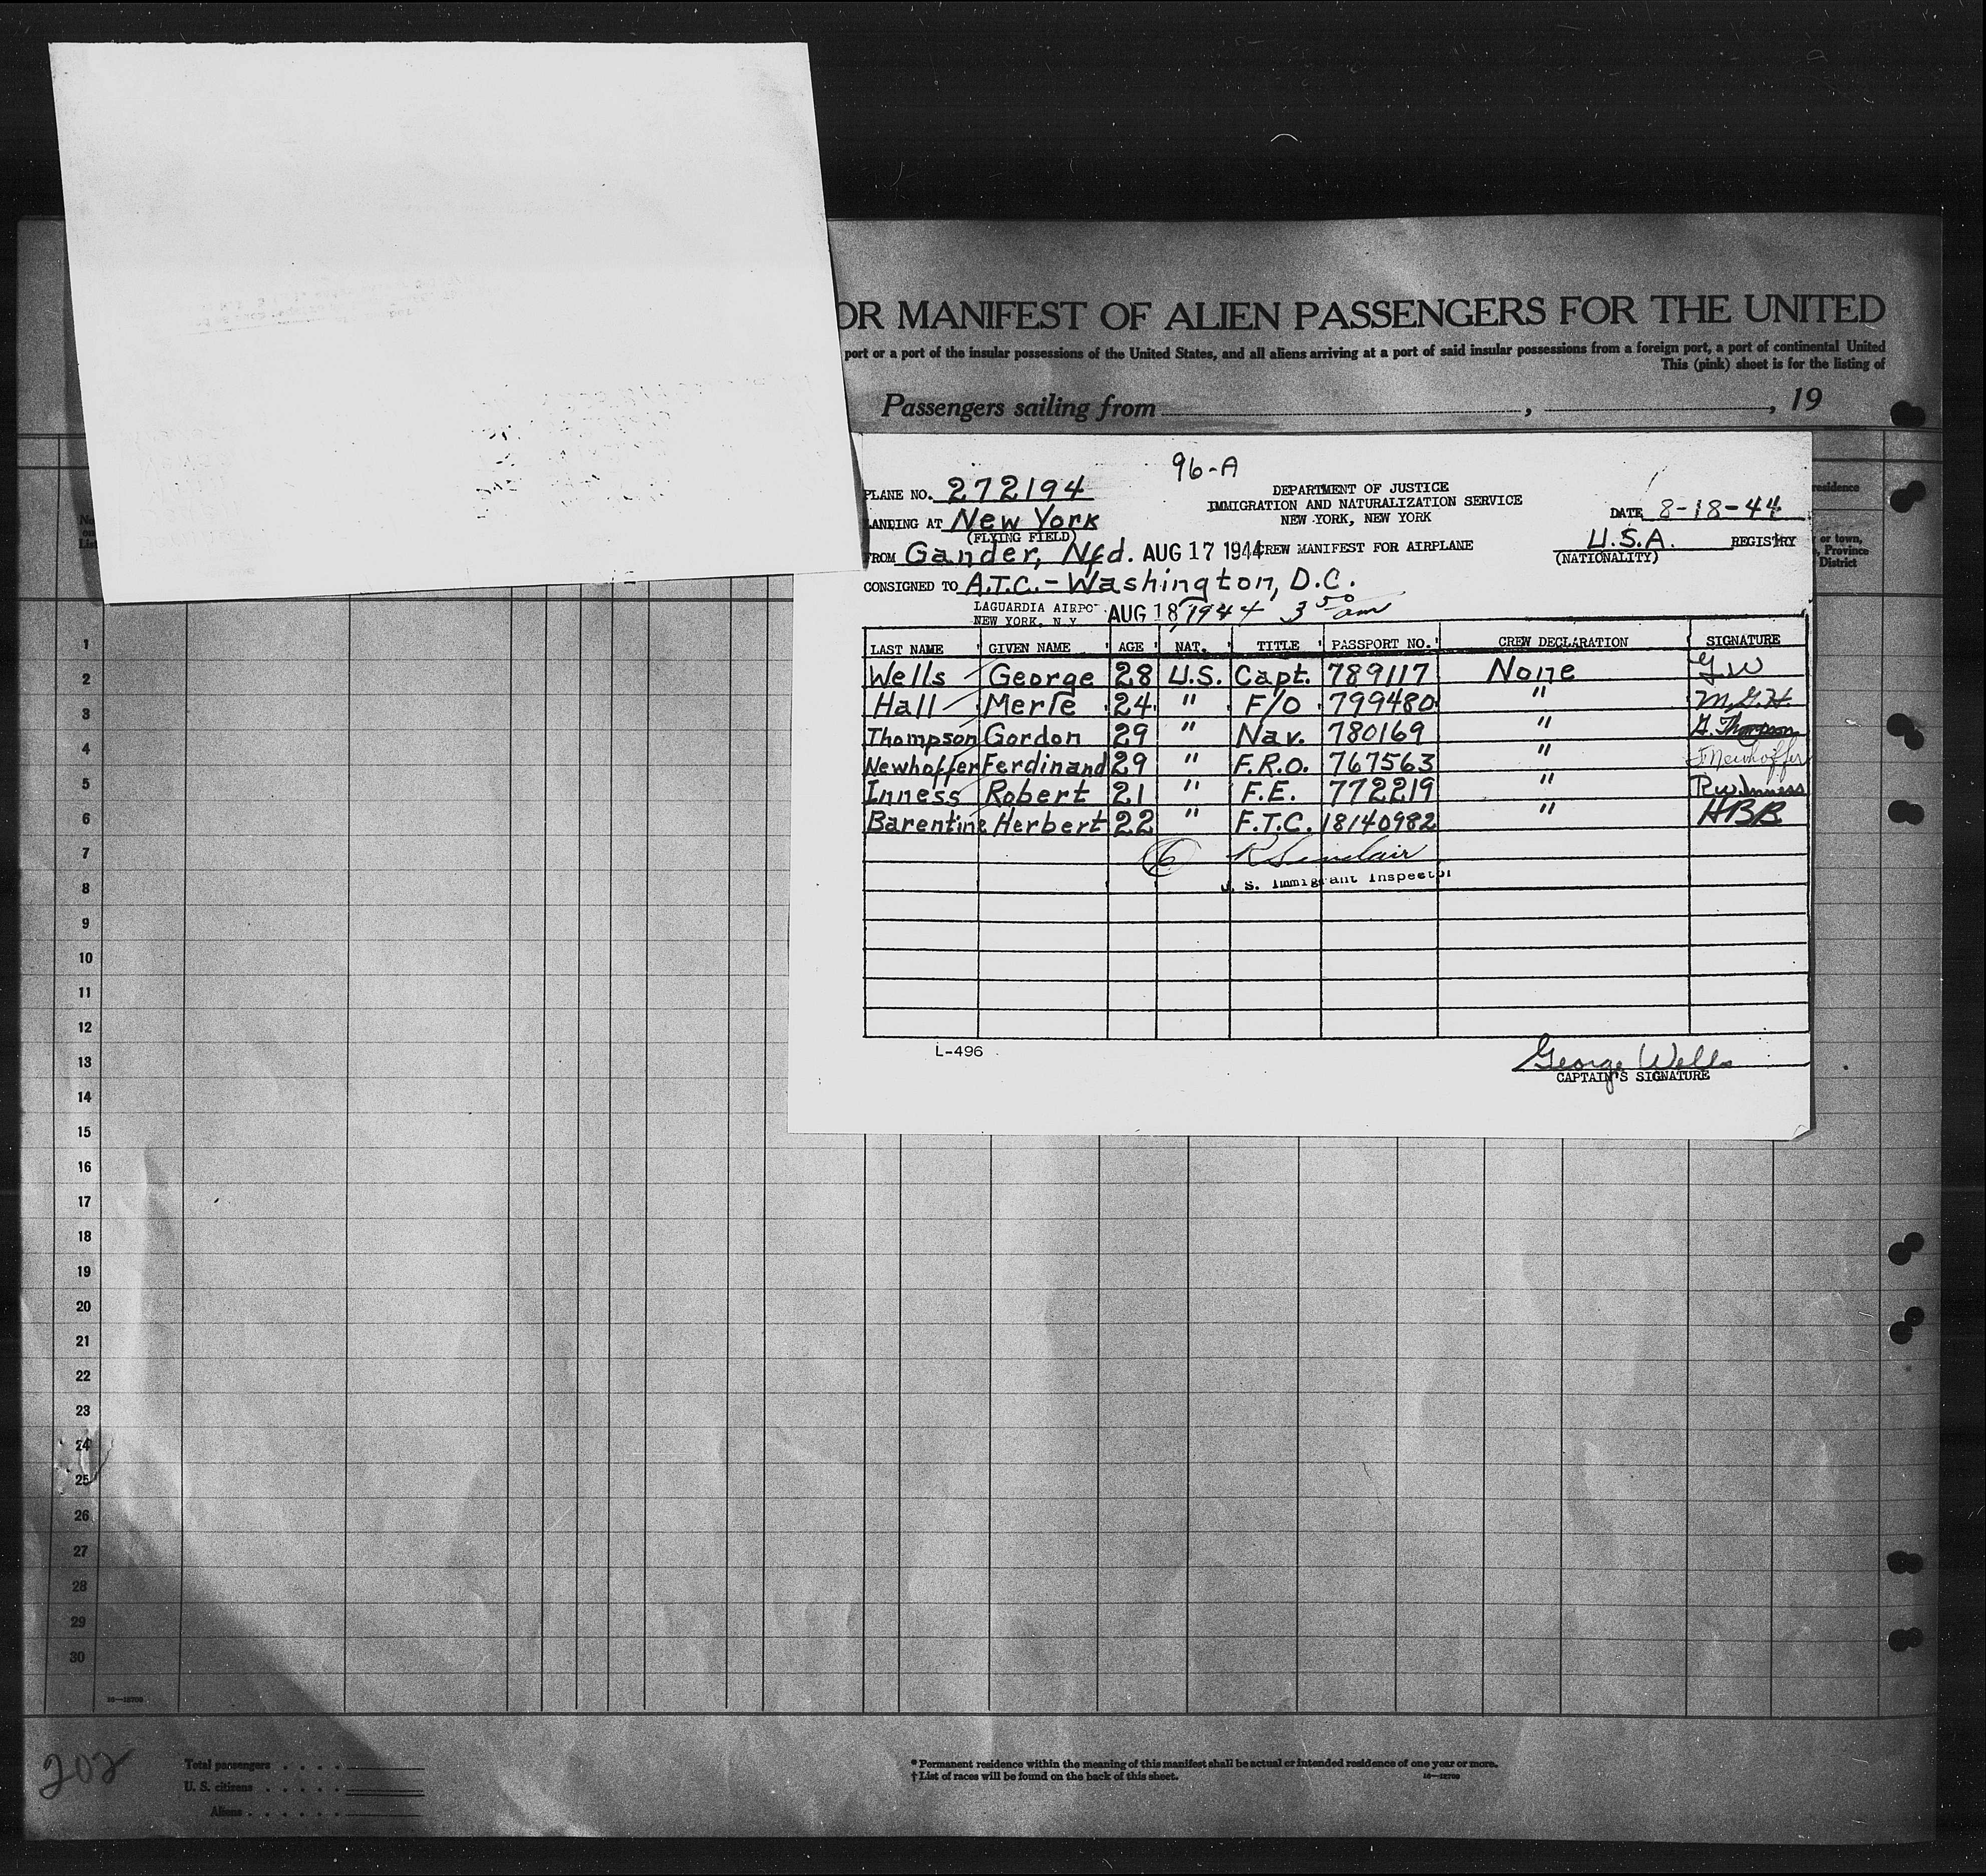 OR MANIFEST OF ALIEN PASSENGERS FOR THE UNITED
port or a port of the insular possessions of the United States, and all aliens arriving at a port of said insular possessions from a foreign port, a port of continental United
This (pink) sheet is for the listing of
Passengers sailing from , , 19
96-A
PLANE NO. 272194
DEPARTMENT OF JUSTICE
IMMIGRATION AND NATURALIZATION SERVICE
NEW YORK, NEW YORK
DATE 8-18-44
LANDING AT New York
(FLYING FIELD)
FROM Gander, Nfd. AUG 17 1944 CREW MANIFEST FOR AIRPLANE
U.S.A. REGISTRY
(NATIONALITY)
CONSIGNED TO A.T.C. - Washington, D.C.
LAGUARDIA AIRPO
NEW YORK, N.Y. AUG 18 1944 3 50 am
LAST NAME GIVEN NAME AGE NAT. TITLE PASSPORT NO. CREW DECLARATION SIGNATURE
Wells George 28 U.S. Capt. 789117 None G.W
Hall Merle 24 " F/O 799480 " M.G.H.
Thompson Gordon 29 " Nav. 780169 " G. Thompson
Newhoffer Ferdinand 29 " F.R.O. 767563 " F Newhoffer
Inness Robert 21 " F.E. 772219 " R.W. Inness
Barentine Herbert 22 " F.T.C. 18140982 " HBB
6 R Sinclair
U. S. Immigrant Inspector
L-496
George Wells
CAPTAIN'S SIGNATURE
residence
or town,
Province
District
No.
on
List
1
2
3
4
5
6
7
8
9
10
11
12
13
14
15
16
17
18
19
20
21
22
23
24
25
26
27
28
29
30
16—18700
202
Total passengers . . . .
U. S. citizens . . . . .
Aliens . . . . . .
* Permanent residence within the meaning of this manifest shall be actual or intended residence of one year or more.
† List of races will be found on the back of this sheet.
16—18700